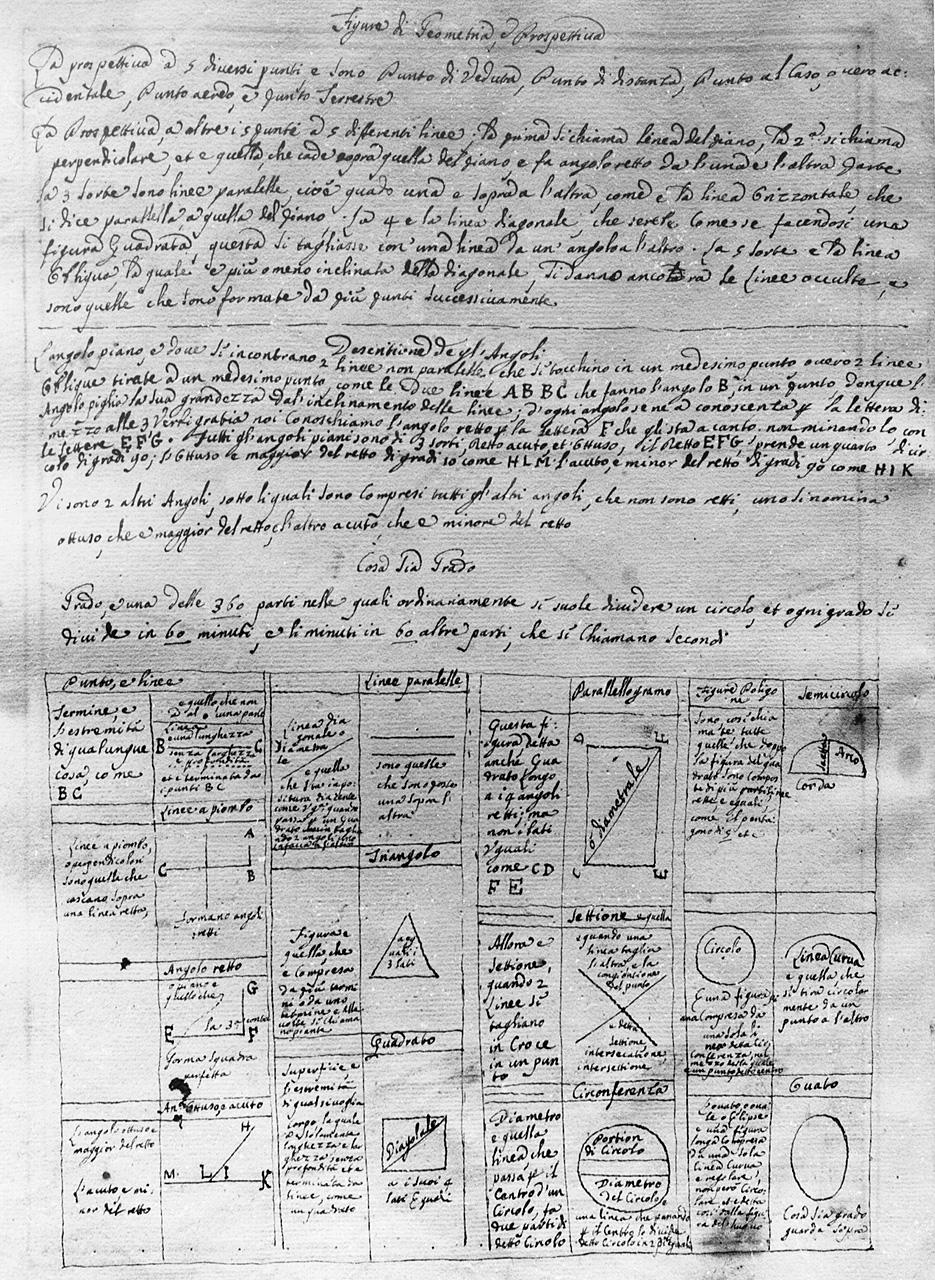 Figure di Geometria, e Prospettiva
La prospettiva a 5 diversi punti e sono Punto di Veduta, Punto di distanza, Punto al Caso, o vero ac:
cidentale, Punto aereo, e Punto Terrestre
La Prospettiva, a altre i 5 punti a 5 differenti linee. La prima si chiama linea del piano, la 2.ª si chiama
perpendicolare, et e quella che cade sopra quella del piano e fa angolo retto da l'una e l'altra parte
la 3 sorte sono linee paralelle cioè quado una e sopra a l'altra come e la linea Orizzontale che
si dice parallella a quella del piano. la 4 e la linea diagonale, che serebe come se facendosi una
figura Quadrata, questa si tagliasse con una linea da un angolo a l'altro. La 5 sorte e la linea
Obliqua, la quale e più o meno inclinata della diagonale, si danno ancora le linee occulte, e
sono quelle che sono formate da più punti successivamente
Descritione de gl'Angoli
L'angolo piano e dove si incontrano 2 linee non paralelle, che si tocchino in un medesimo punto o vero 2 linee
Oblique tirate ad un medesimo punto come le Due linee AB BC che fanno l'angolo B, in un punto donque l'
Angolo piglia la sua grandezza dal'inclinamento delle linee, d'ogni angolo se ne a conoscenza p la lettera di
mezzo alle 3 verbi gratia noi Conoschiamo l'angolo retto p la lettera F che gli sta a canto. nominando lo con
le lettere EFG. Tutti gl'angoli piani sono di 3 sorti, Retto acuto, et Ottuso, il Retto EFG, prende un quarto di cir
colo di gradi 90; l'Ottuso e maggior del retto di gradi 90 come HLM l'acuto e minor del retto di gradi 90 come HIK
Vi sono 2 altri Angoli, sotto li quali sono Compresi tutti gl'altri angoli, che non sono retti, uno si nomina
ottuso, che e maggior del retto, l'altro acuto, che e minore del retto
Cosa Sia Grado
Grado, e una delle 360 parti nelle quali ordinariamente si suole dividere un circolo, et ogni grado si
divide in 60 minuti, e li minuti in 60 altre parti, che si Chiamano Secondi
Punto, e linee
Termine e
l'estremità
di qualunque
cosa come
BC
e quello che non
Linea
e una lunghezza
B C
senza larghezza
e profondità
et e terminata da
i punti BC
Linee a piombo
Linee a piombo,
o perpendicolari
sono quelle che
cascano sopra
una linea retta,
A
C B
formano angoli
retti
Angolo retto
G
E F
forma squadra
perfetta
Ang. Ottuso e acuto
L'angolo ottuso e
maggior del retto
L'acuto e mi
nor del retto
H
M L I K
Linea dia
gonale o
diametra
le
e quella
Linee paralelle
sono quelle
che son poste
una sopra l'
altra
Triangolo
Figura e
quella che
e compresa
da più termi
ni o da uno
termine
3 lati
Quadrato
Superficie e
l'estremità
di qualsivoglia
Corpo, la quale
a solamente
longhezza e lar
ghezza senza
profondità et e
terminata da
linee, come
un quadrato
Diagolale
a i suoi 4
lati Equali
Parallellogramo
Questa fi
gura detta
anche Qua
drato Longo
a i 4 angoli
retti, ma
non i lati
Uguali
come CD
FE
D F
o Diametrale
C E
Settione
Allora e
Settione,
quando 2
Linee si
tagliano
in Croce
in un pun
to
e quella
quando una
linea taglia
l'altra e la
congiontione
del punto
e detta
Settione
intersecatione
intersettione
Circonferenza
Diametro
e quella
linea che
passa p il
Centro d'un
Circolo, fa
due parti di
detto Circolo
Portion
di Circolo
Diametro
del Circolo e
una linea che passando
p il Centro lo divide
detto Circolo in 2 parti
Figure Poligo
ne
Sono, cosi chia
mate tutte
quelle che doppo
la figura del qua
drato son compos
te di più parti, linee
rette e equali
come el penta
gono
Semicircolo
Saetta
Arco
Corda
Circolo
E una figura pi
ana Compresa da
una sola li
nea detta Cir
conferenza, nel
mezzo della quale
e un punto detto centro
Linea Curva
e quella che
si tira circolar
mente da un
punto a l'altro
Ouato
Ouato, o oua
le o Elipse
e una figura
longa Compresa
da una sola
linea Curva
e regolare,
non però Circo
lare
Cosa Sia grado
guarda Sopra